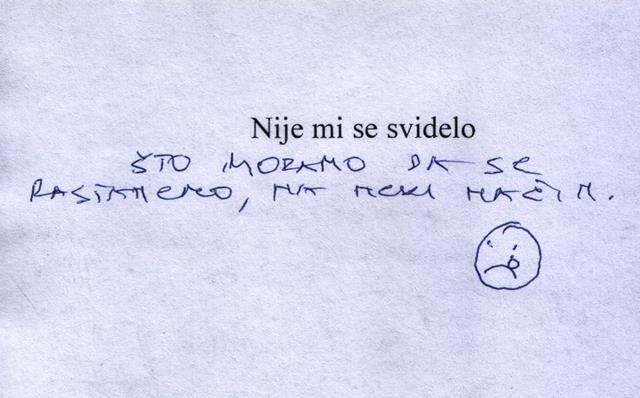 Nije mi se svidelo
ŠTO MORAMO DA SE
RASTANEMO, NA NEKI NAČIN.